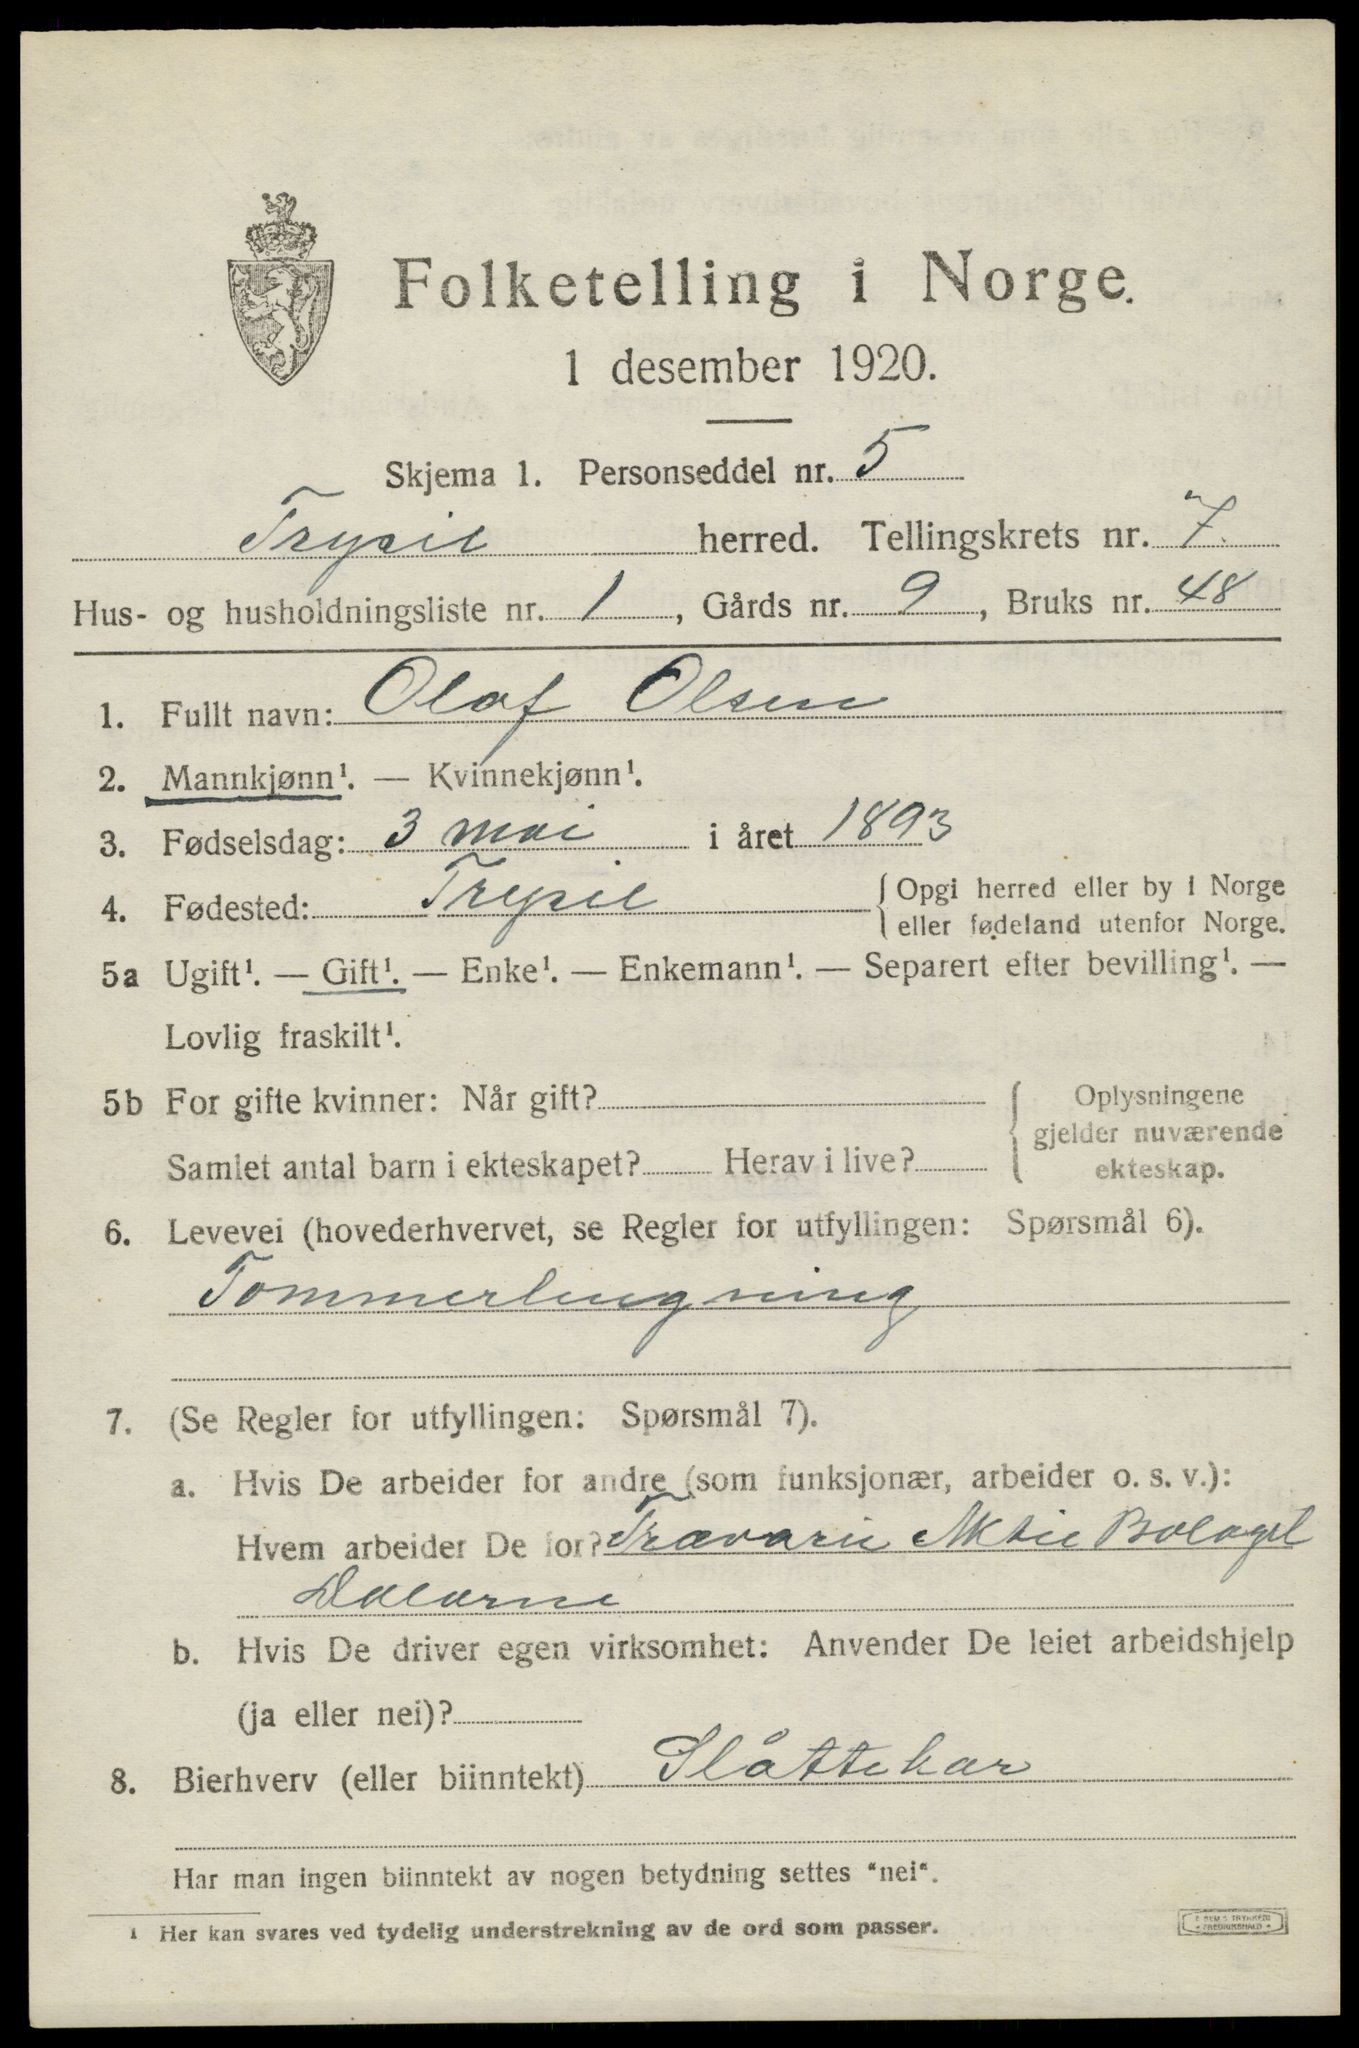 Folketelling i Norge.
1 desember 1920.
Skjema 1. Personseddel nr. 5
Trysil herred. Tellingskrets nr. 7.
Hus- og husholdningsliste nr. 1, Gårds nr. 9, Bruks nr. 48
1. Fullt navn: Olaf Olsen
2. Mannkjønn¹. — Kvinnekjønn¹.
3. Fødselsdag: 3 mai i året 1893
4. Fødested: Trysil { Opgi herred eller by i Norge
eller fødeland utenfor Norge.
5a Ugift¹. — Gift¹. — Enke¹. — Enkemann¹. — Separert efter bevilling¹. —
Lovlig fraskilt¹.
5b For gifte kvinner: Når gift? { Oplysningene
gjelder nuværende
Samlet antal barn i ekteskapet? Herav i live? ekteskap.
6. Levevei (hovederhvervet, se Regler for utfyllingen: Spørsmål 6).
Tommerhugning
7. (Se Regler for utfyllingen: Spørsmål 7).
a. Hvis De arbeider for andre (som funksjonær, arbeider o. s. v.):
Hvem arbeider De for? Trævaru Aktie Bolaget
Dalarne
b. Hvis De driver egen virksomhet: Anvender De leiet arbeidshjelp
(ja eller nei)?
8. Bierhverv (eller biinntekt) Slåttekar
Har man ingen biinntekt av nogen betydning settes "nei".
¹ Her kan svares ved tydelig understrekning av de ord som passer.